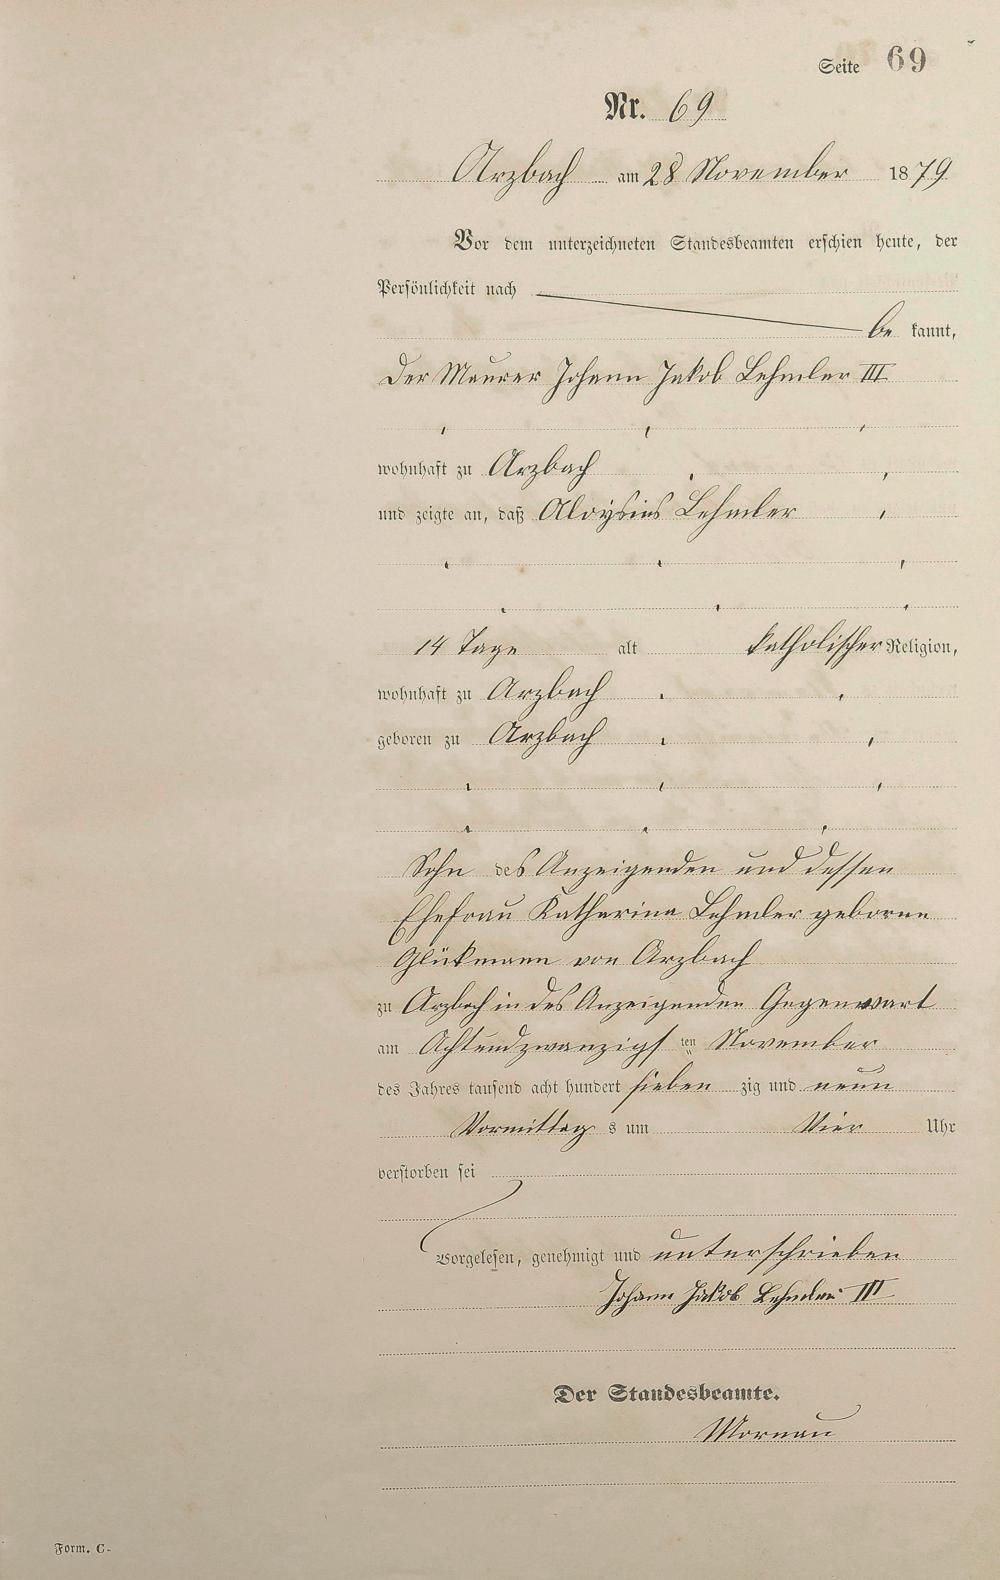 Seite 69
Nr. 69
Arzbach am 28 November 1879
Vor dem unterzeichneten Standesbeamten erschien heute, der
Persönlichkeit nach
be kannt,
Der Maurer Johann Jakob Lehmler III
wohnhaft zu Arzbach
und zeigte an, daß Aloysius Lehmler
14 Tage alt katholischer Religion,
wohnhaft zu Arzbach
geboren zu Arzbach
Sohn des Anzeigenden und dessen
Ehefrau Katharina Lehmler geborne
Glükmann von Arzbach
zu Arzbach in des Anzeigenden Gegenwart
am Achtundzwanzigs ten November
des Jahres tausend acht hundert sieben zig und neun
Vormittag s um Vier Uhr
verstorben sei
Vorgelesen, genehmigt und unterschrieben
Johann Jakob Lehmler III
Der Standesbeamte.
Mornau
Form. C.